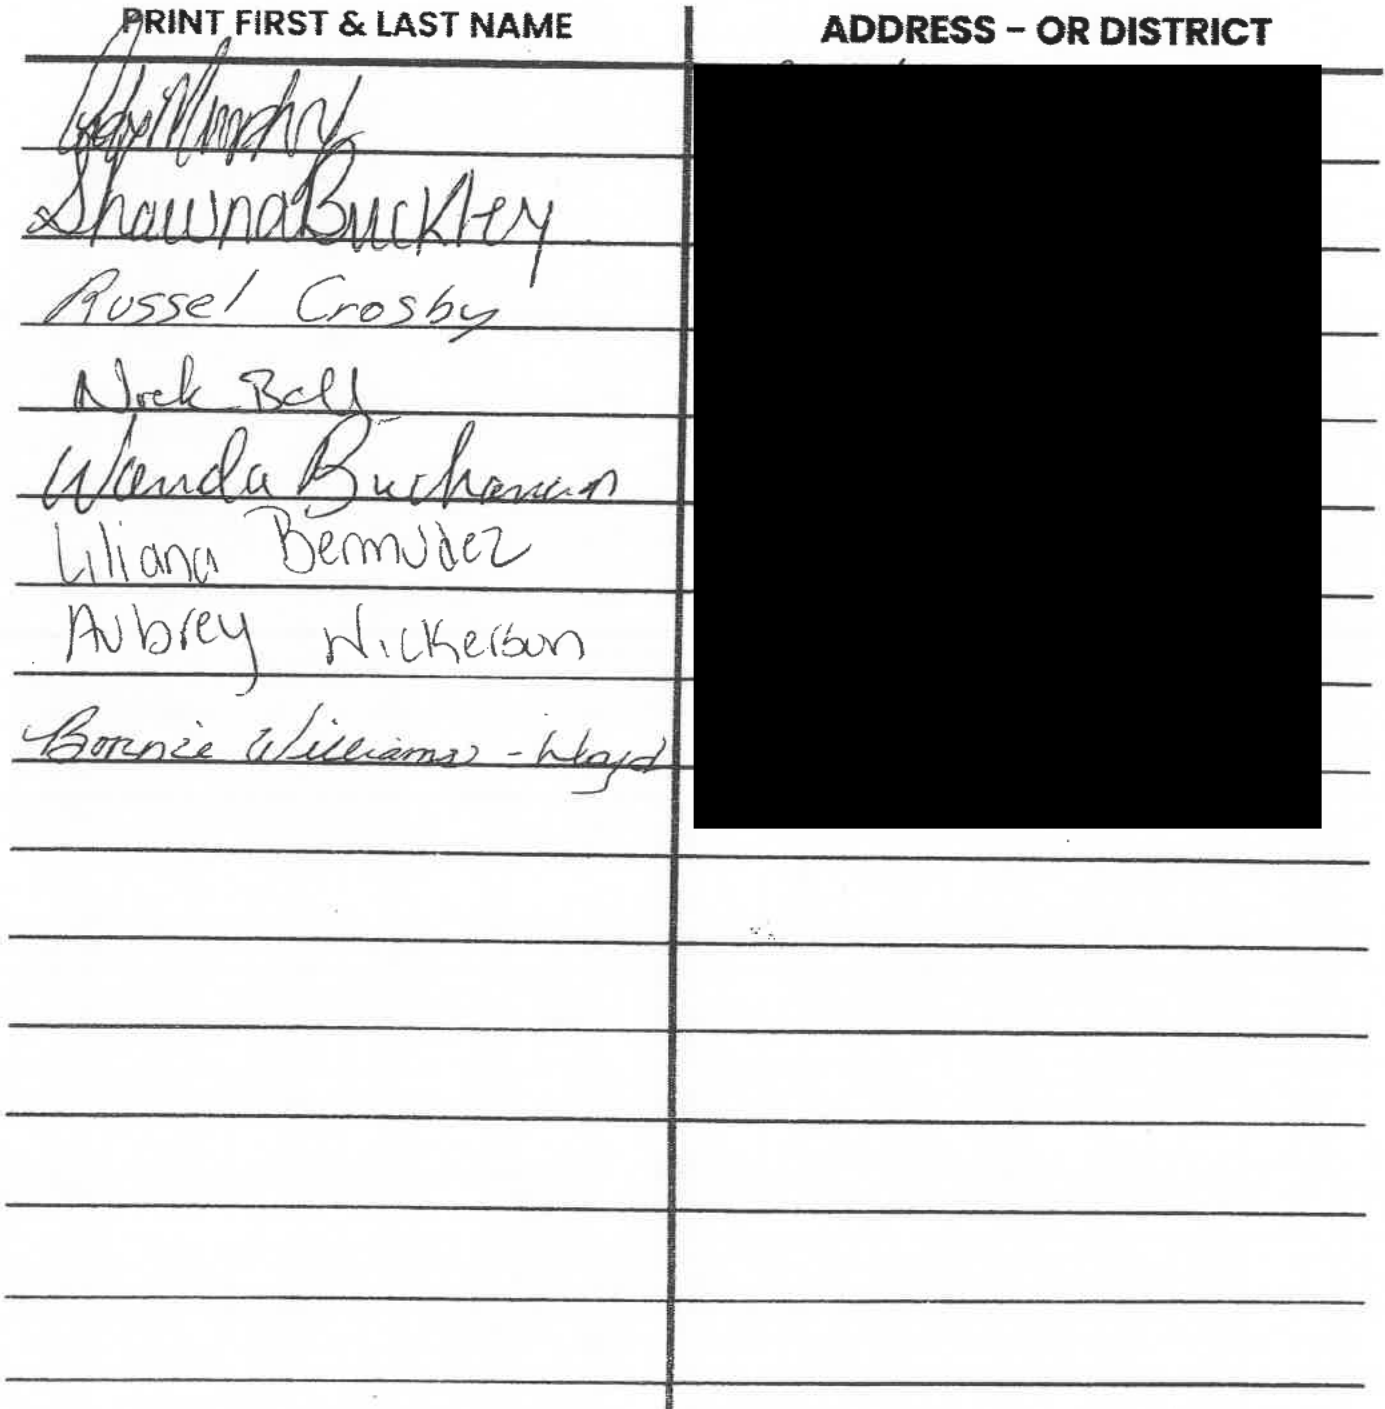 PRINT FIRST & LAST NAME ADDRESS – OR DISTRICT
Murphy
Shawna Buckley
Russel Crosby
Nick Ball
Wanda Buchanan
Liliana Bermudez
Aubrey Nickerson
Bonnie Williams - Lloyd